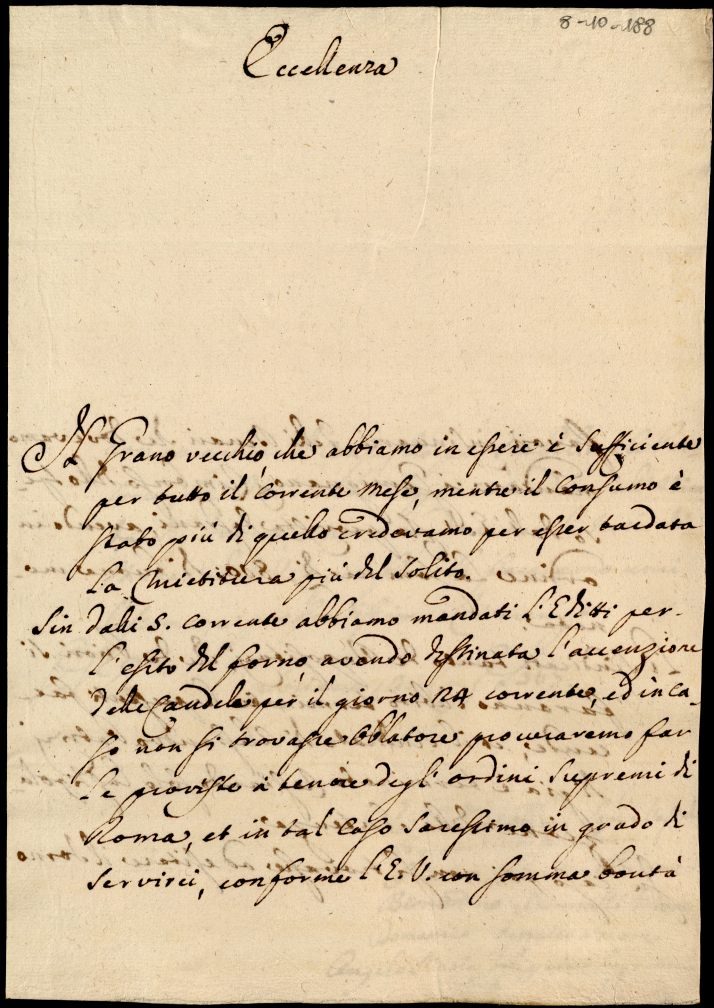 8-10-188
Eccellenza
Il Grano vecchio, che abbiamo in essere è sufficiente
per tutto il corrente Mese, mentre il consumo è
stato più di quello credevamo per esser tardata
la Mietitura più del solito.
Sin dalli 5. corrente abbiamo mandati l'Editti per
l'esito del forno, avendo destinata l'accenzione
delle Candele per il giorno 24 corrente, ed in ca-
so non si trovasse Oblatore procuraremo far
le proviste a tenore degl'ordini supremi di
Roma, et in tal caso saressimo in grado di
servirci, conforme l'E. V. con somma bontà